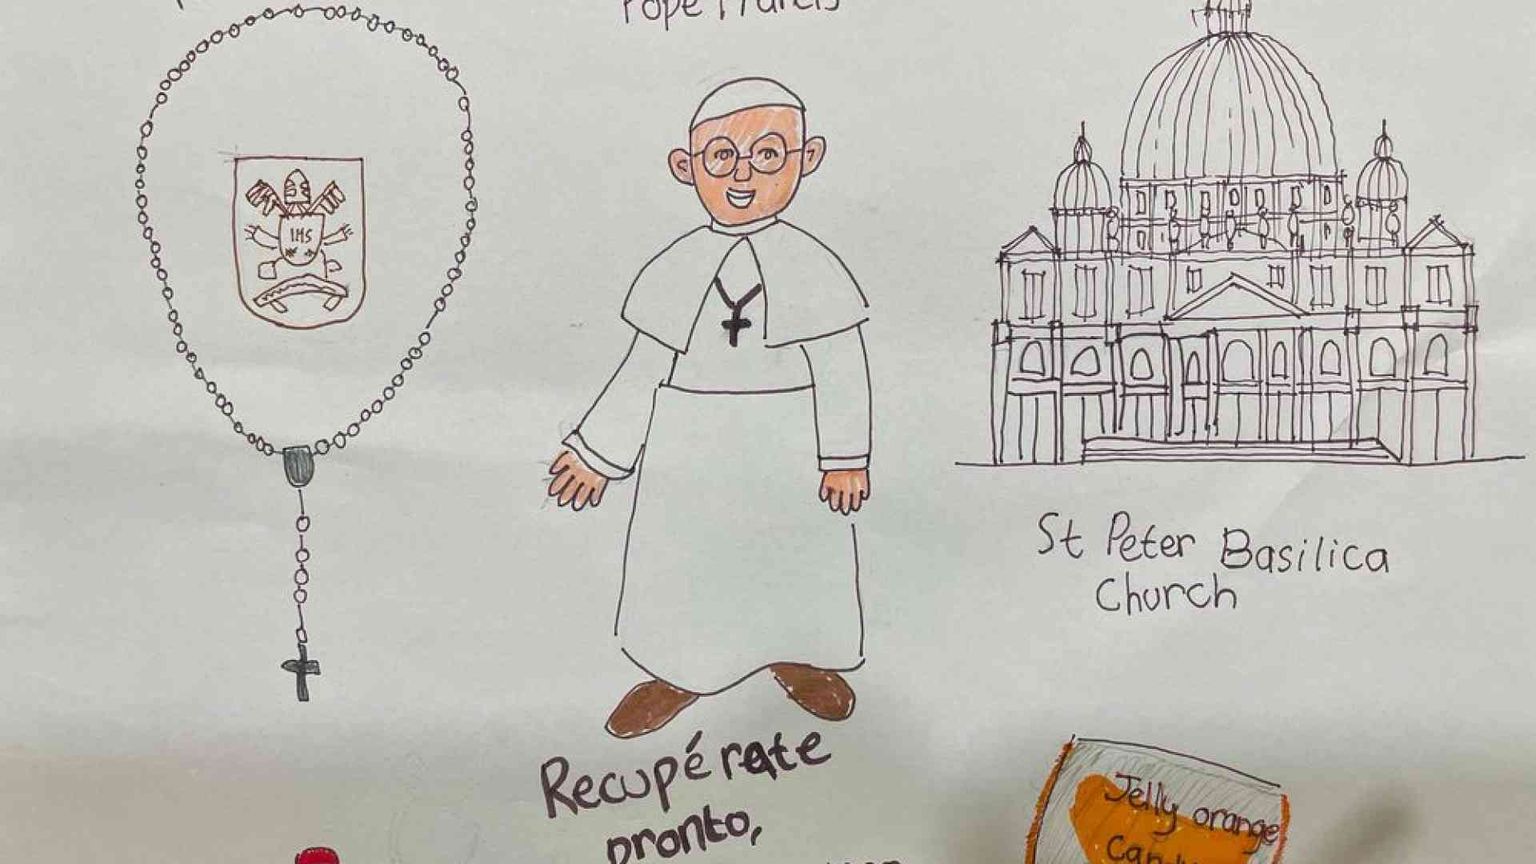 Pope Francis
IHS
St Peter Basilica
Church
Recupérate
pronto,
Jelly orange
Candy